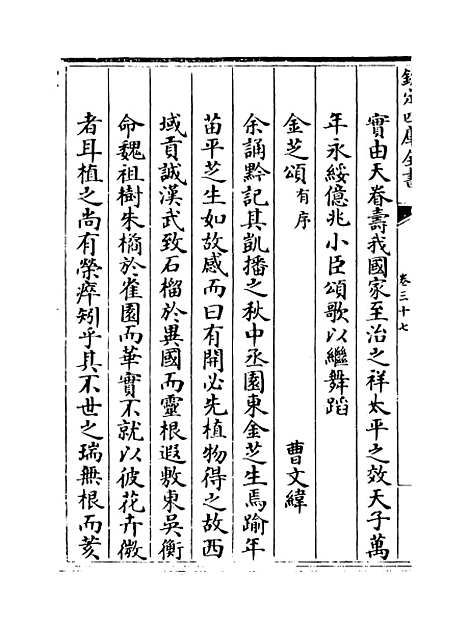 欽定四庫全書
卷三十七
實由天眷壽我國家至治之祥太平之效天子萬
年永綏億兆小臣頌歌以繼舞蹈
金芝頌有序 曹文緯
余誦黔記其凱播之秋中丞園東金芝生焉踰年
苗平芝生如故感而曰有開必先植物得之故西
域貢誠漢武致石榴於異國而靈根遐敷東吳衡
命魏祖樹朱橘於雀園而華實不就以彼花卉微
者耳植之尚有榮瘁矧乎其不世之瑞無根而荄